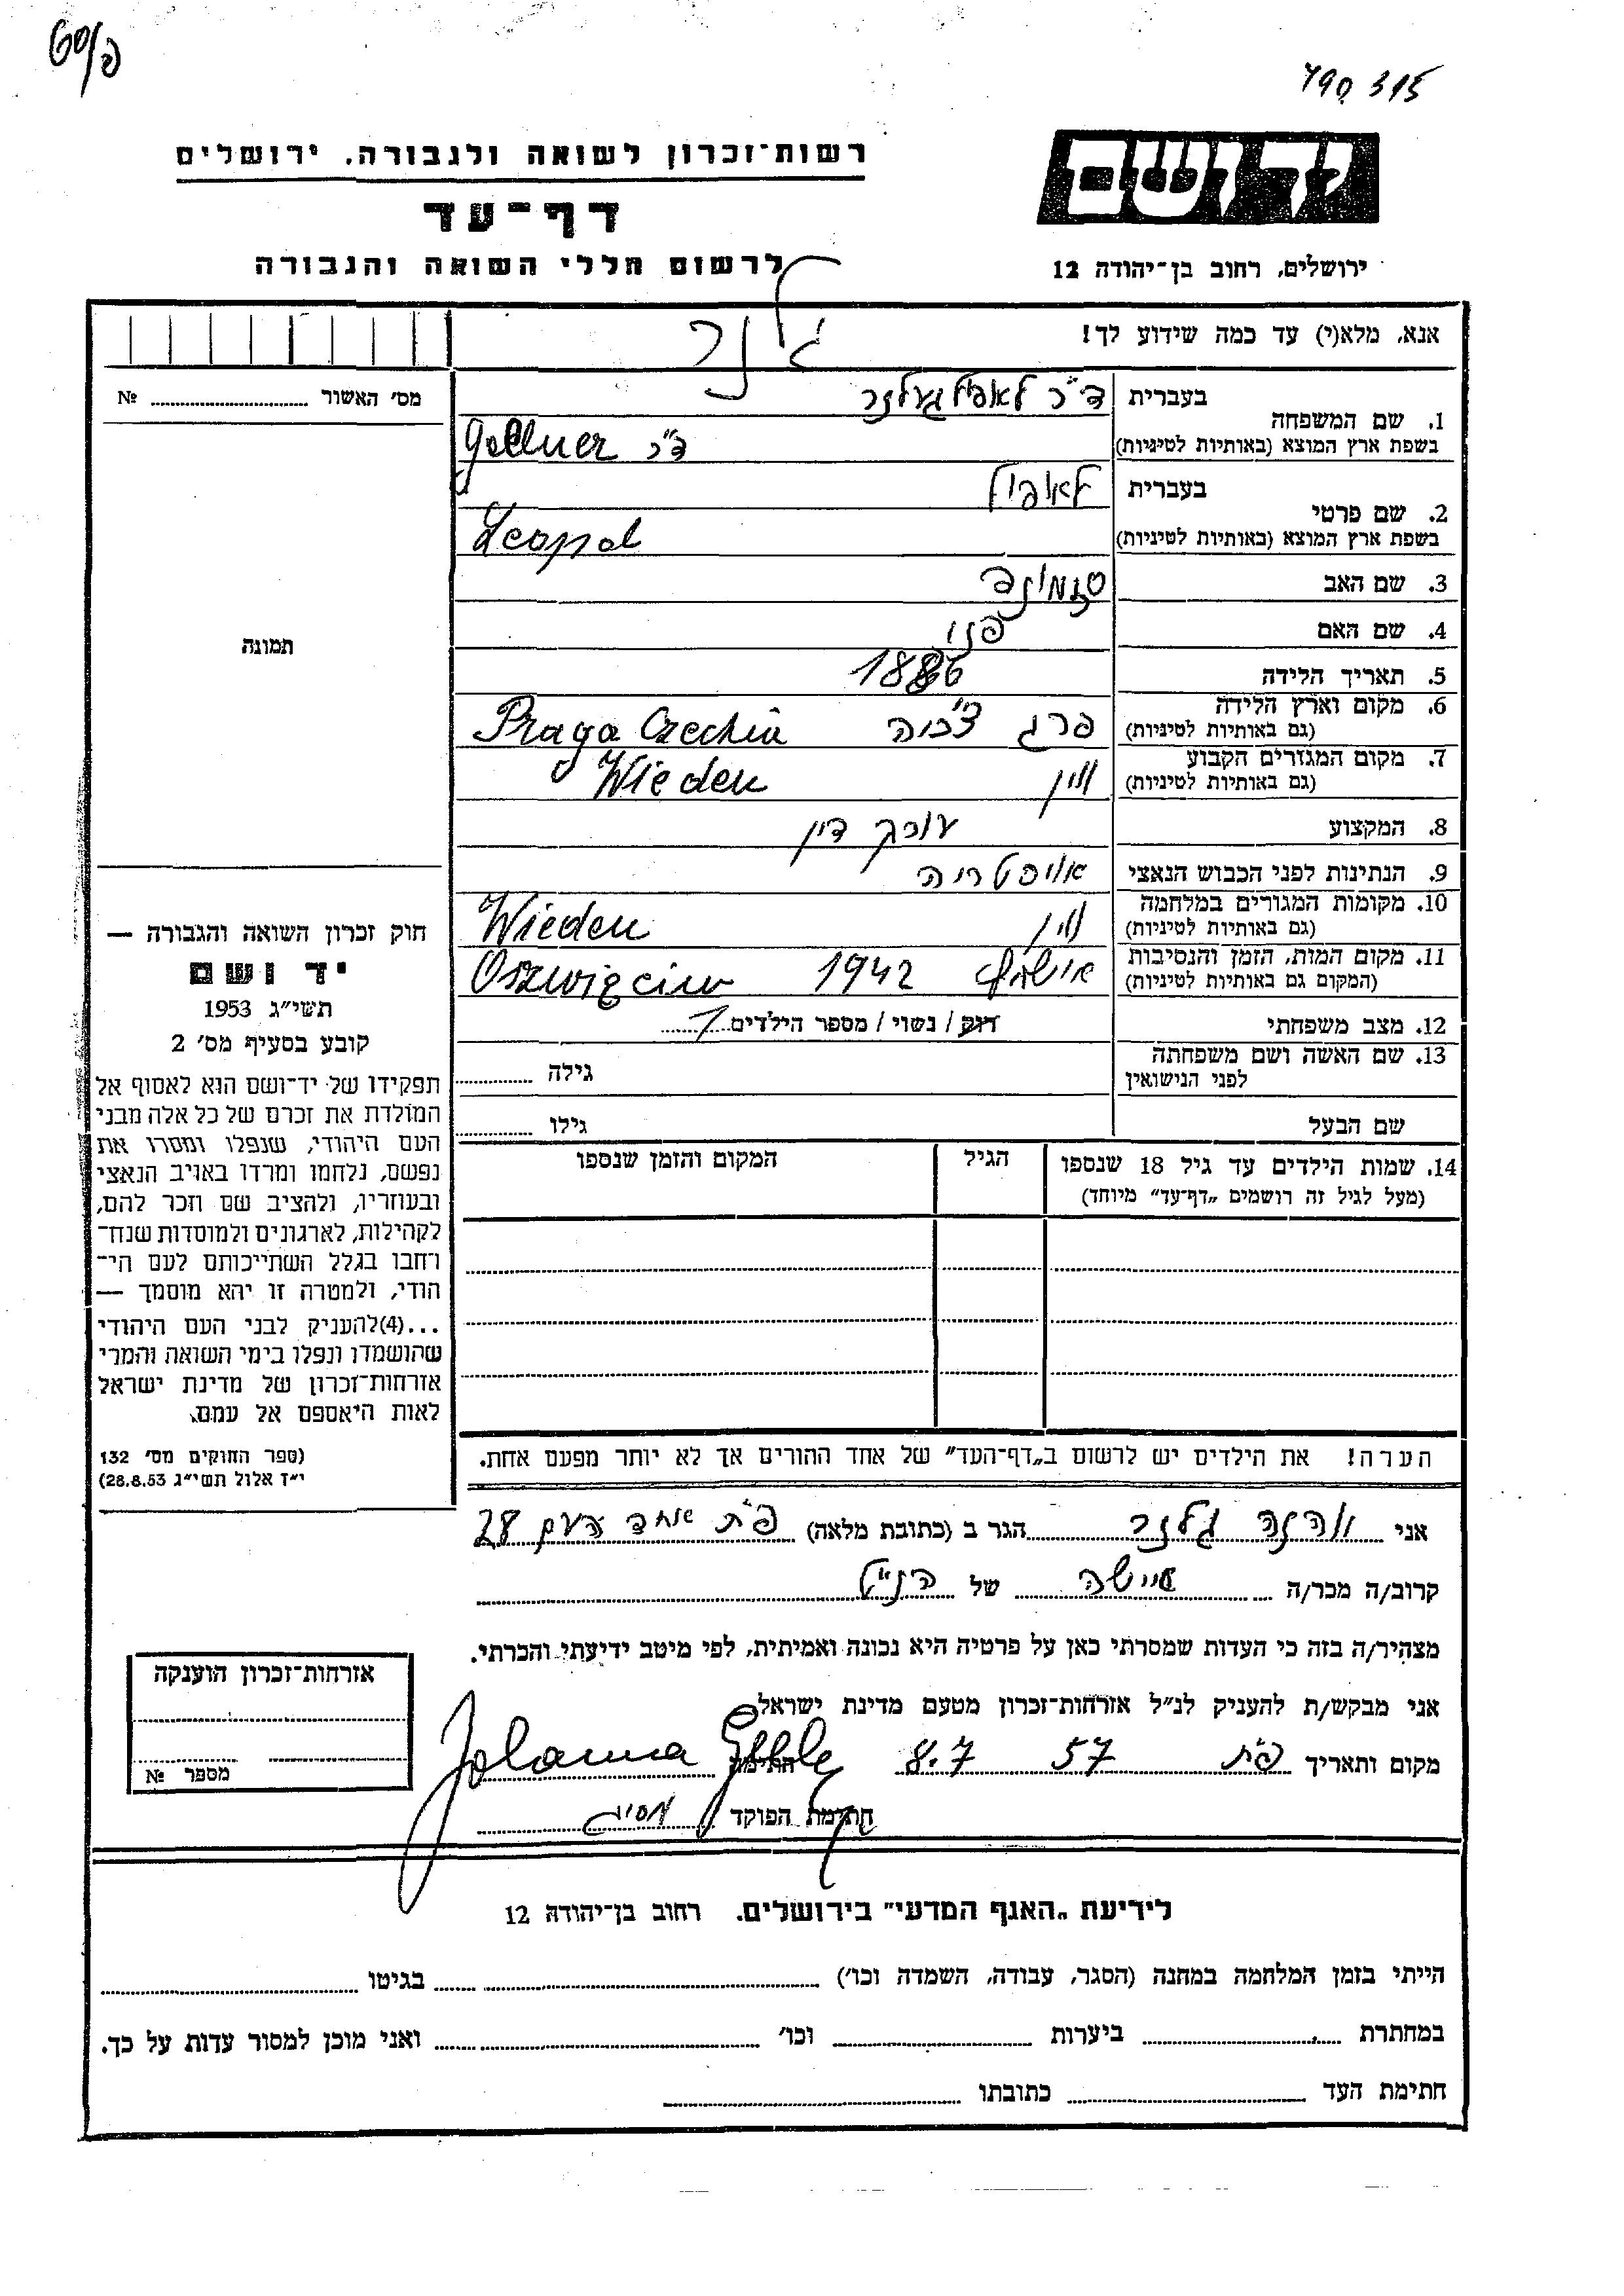 790 315
רשות־זכרון לשואה ולגבורה. ירושלים
יד ושם
דף־עד
לרשום חללי השואה והגבורה
ירושלים, רחוב בן־יהודה 12
אנא, מלא(י) עד כמה שידוע לך!
גלנר
מס׳ האשור № 
1. שם המשפחה בעברית ד״ר לאופול געלנר
בשפת ארץ המוצא (באותיות לטיניות) ד״ר Gellner
2. שם פרטי בעברית לאופול
בשפת ארץ המוצא (באותיות לטיניות) Leopol
3. שם האב
4. שם האם פני
תמונה
5. תאריך הלידה 1886
6. מקום וארץ הלידה (גם באותיות לטיניות) פרג צ׳כיה Praga Czechia
7. מקום המגורים הקבוע (גם באותיות לטיניות) ווין Wieden
8. המקצוע עורך דין
9. הנתינות לפני הכבוש הנאצי אוסטריה
10. מקומות המגורים במלחמה (גם באותיות לטיניות) ווין Wieden
11. מקום המות, הזמן והנסיבות (המקום גם באותיות לטיניות) 1942 Oszwięcim
12. מצב משפחתי רוק / נשוי / מספר הילדים 1
13. שם האשה ושם משפחתה לפני הנישואין גילה
שם הבעל גילו
14. שמות הילדים עד גיל 18 שנספו הגיל המקום והזמן שנספו
(מעל לגיל זה רושמים „דף־עד״ מיוחד)
חוק זכרון השואה והגבורה —
יד ושם
תשי״ג 1953
קובע בסעיף מס׳ 2
תפקידו של יד־ושם הוא לאסוף אל
המולדת את זכרם של כל אלה מבני
העם היהודי, שנפלו ומסרו את
נפשם, נלחמו ומרדו באויב הנאצי
ובעוזריו, ולהציב שם וזכר להם,
לקהילות, לארגונים ולמוסדות שנח־
רחבו בגלל השתייכותם לעם הי־
הודי, ולמטרה זו יהא מוסמך —
...(4)להעניק לבני העם היהודי
שהושמדו ונפלו בימי השואה והמרי
אזרחות־זכרון של מדינת ישראל
לאות היאספם אל עמם.
(ספר החוקים מס׳ 132
י״ז אלול תשי״ג 28.8.53)
הערה! את הילדים יש לרשום ב„דף־העד״ של אחד ההורים אך לא יותר מפעם אחת.
אני יוהנה גלנר הגר ב (כתובת מלאה) פ״ת אחד העם 28
קרוב/ה מכר/ה אישה של הנ״ל
מצהיר/ה בזה כי העדות שמסרתי כאן על פרטיה היא נכונה ואמיתית, לפי מיטב ידיעתי והכרתי.
אני מבקש/ת להעניק לנ״ל אזרחות־זכרון מטעם מדינת ישראל
מקום ותאריך פ״ת 57 8.7 חתימה Johanna
חתימת הפוקד
אזרחות־זכרון הוענקה
מספר №
לידיעת „האגף המדעי״ בירושלים. רחוב בן־יהודה 12
הייתי בזמן המלחמה במחנה (הסגר, עבודה, השמדה וכו׳) בגיטו
במחתרת ביערות וכו׳ ואני מוכן למסור עדות על כך.
חתימת העד כתובתו